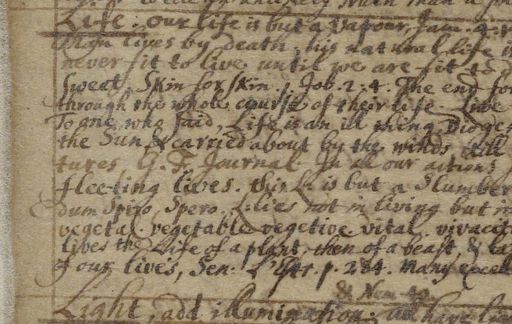 Life. our life is but a Vapour. Jam. 4.
than lives by death, his natural life is
never fit to live until we are fit to
sweat, Skin for skin., Job. 2. 4. The end for
through the whole course of their life. Live
To one who said, Life is an ill thing. Dioge
the Sun, & carried about by the winds
tures G. F. Journal. In all our actions
fleeting lives. this L. is but a Slumber
dum Spiro, Spero. L. lies not in living but in
vegetal vegetable vegetive vital. vivacit
lives the Life of a plant, then of a beast, &
of our lives, Sen: p. 284. Many excell
& Nem
Light, add illumination: